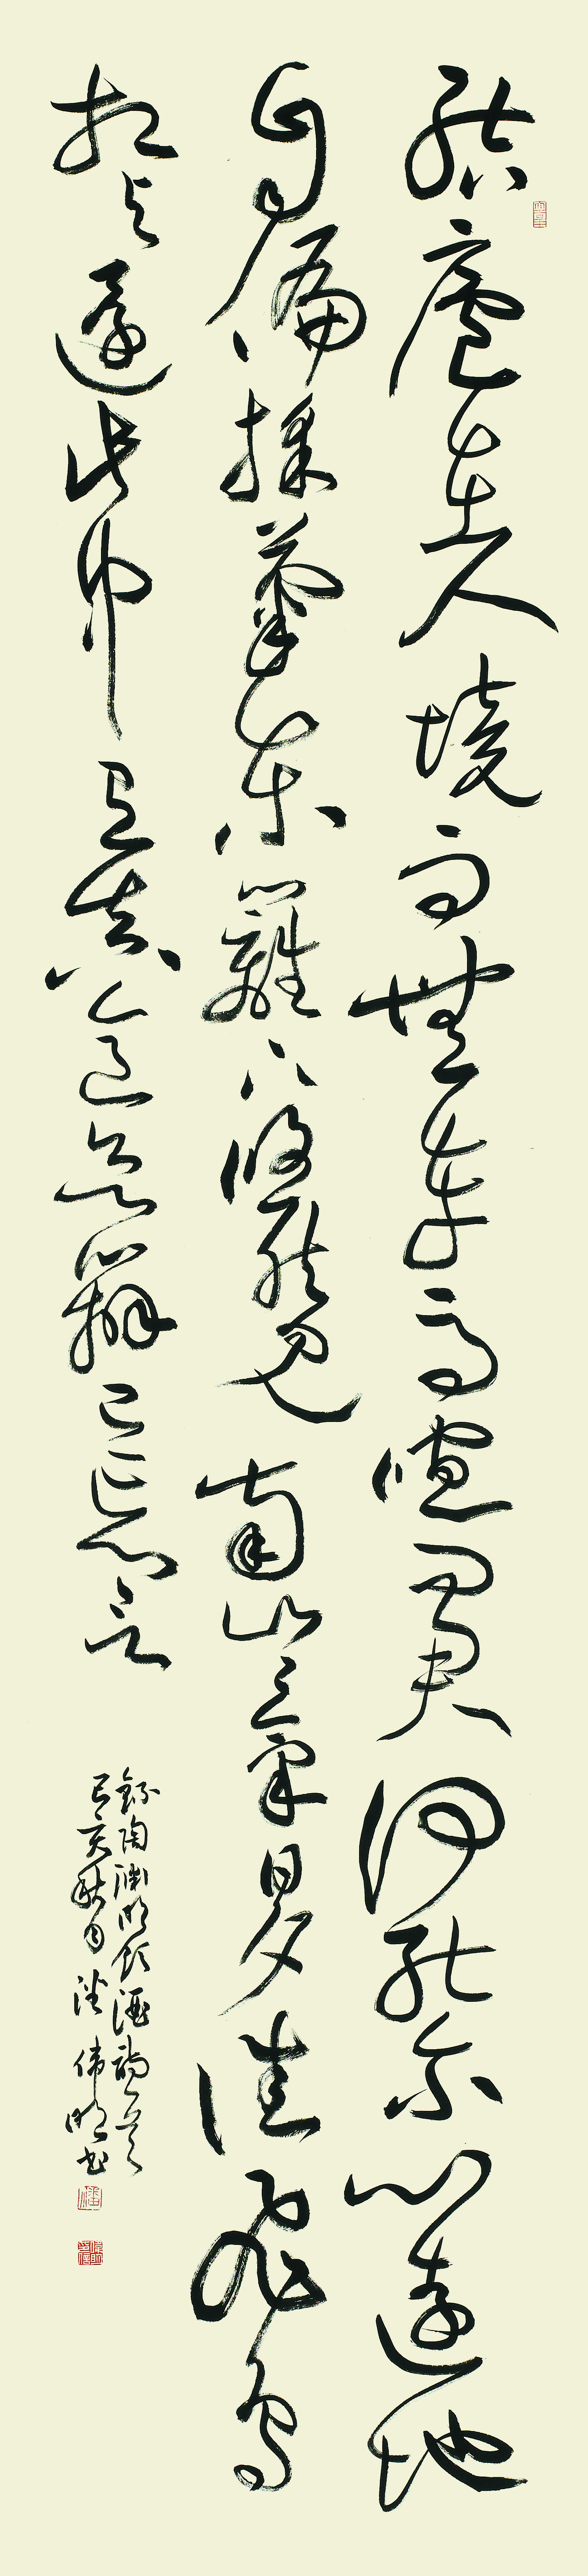 結廬在人境而無車馬喧問君何能尔心遠地
自偏採菊東籬下悠然見南山々氣日夕佳飛鳥
相與還此中有真意欲辨已忘言
錄陶淵明飲酒詩一首
己亥秋月潘偉明書